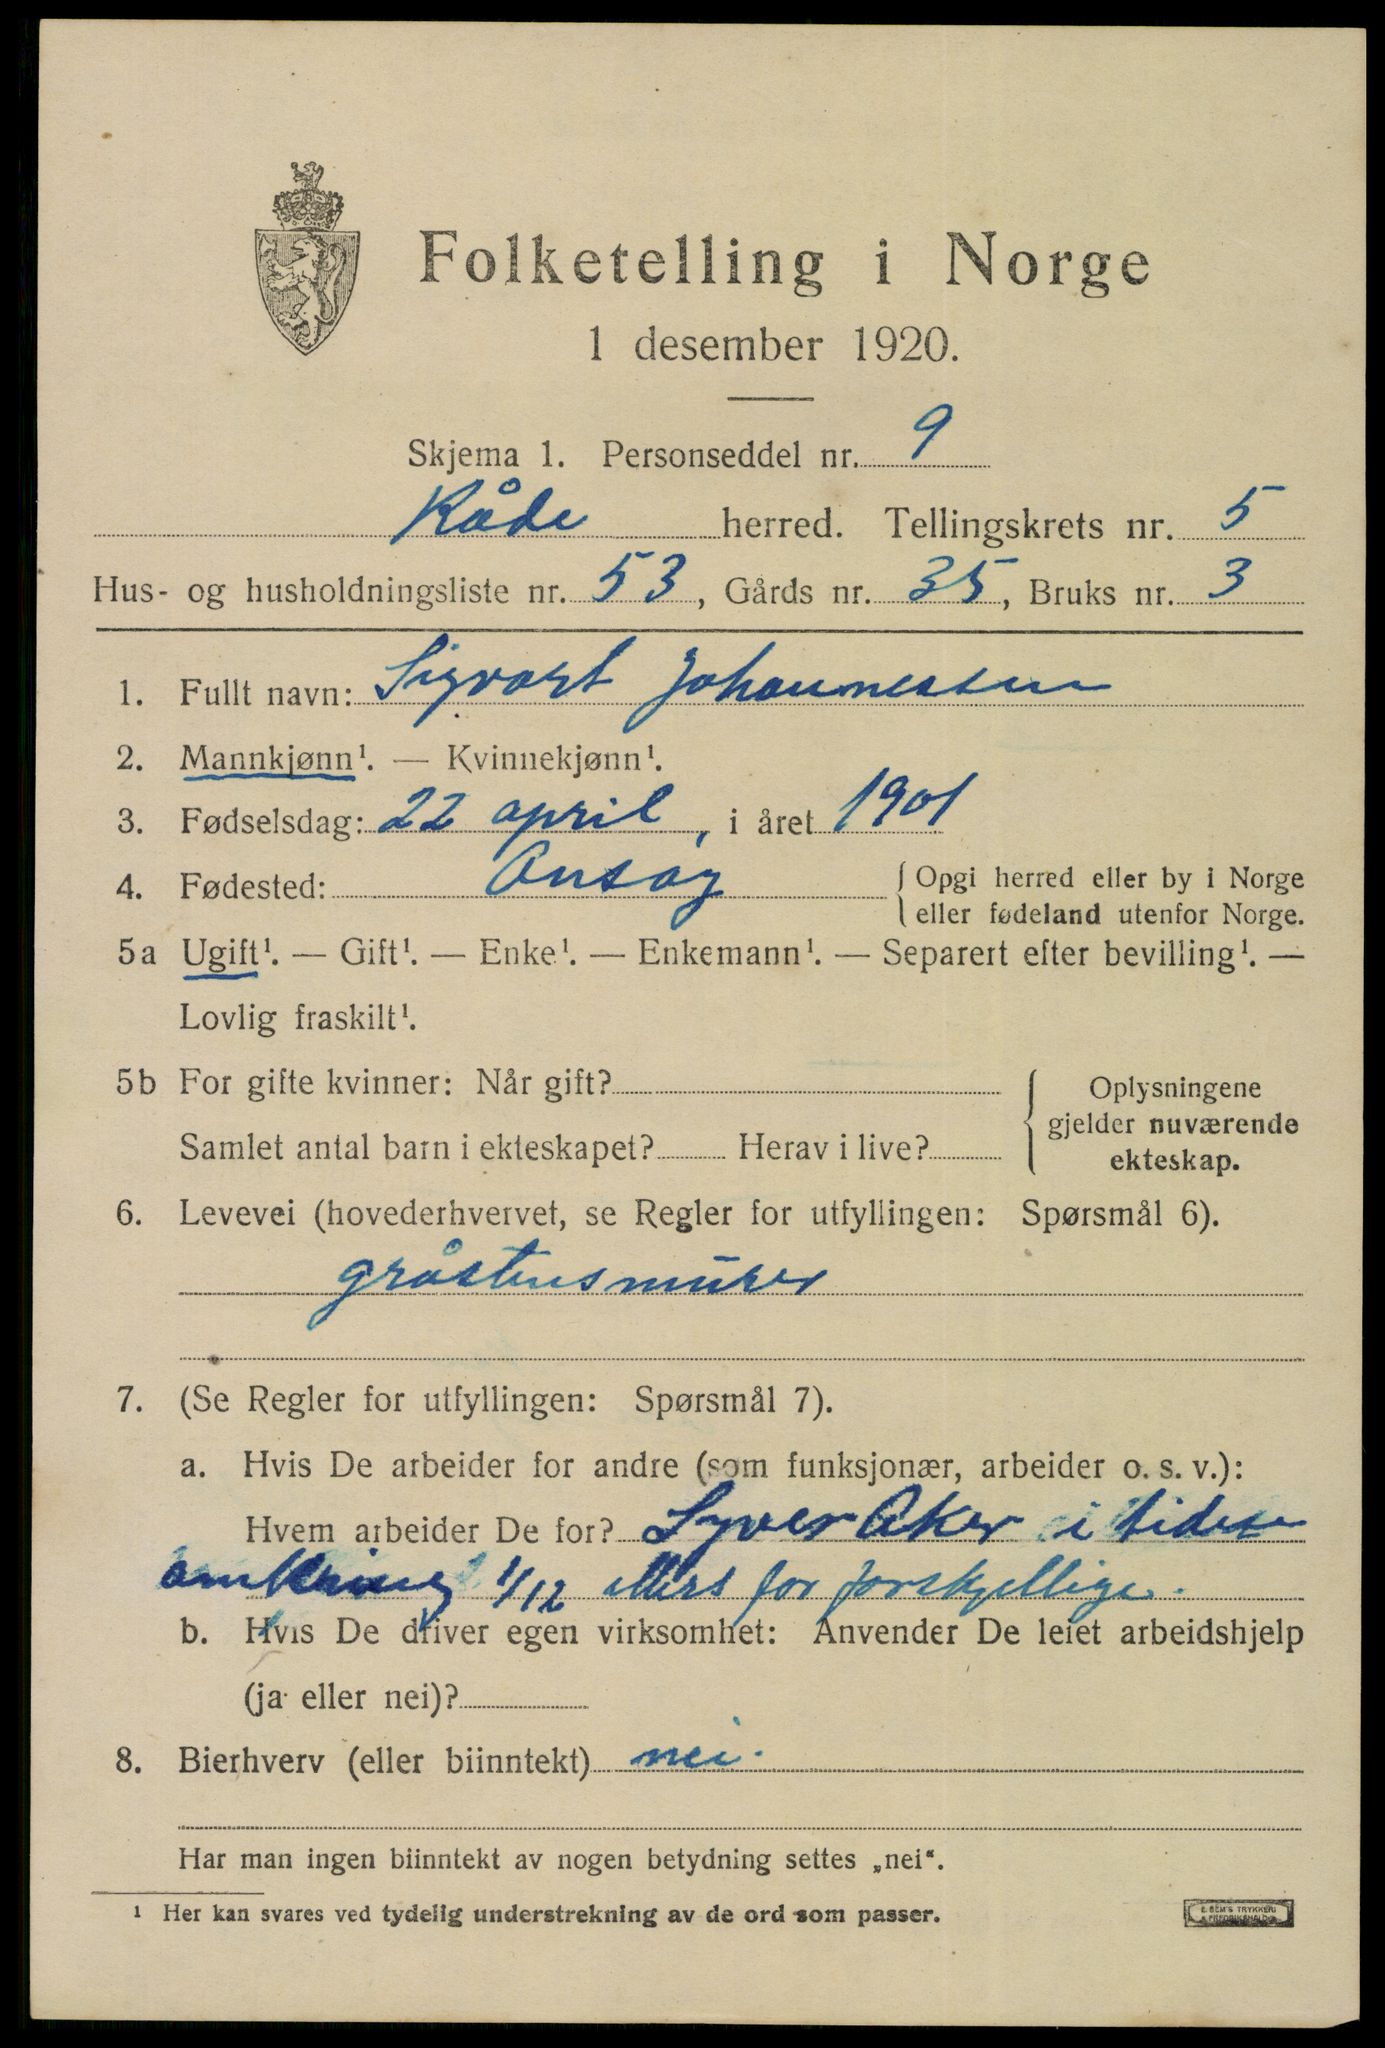 Folketelling i Norge
1 desember 1920.
Skjema 1. Personseddel nr. 9
Råde herred. Tellingskrets nr. 5
Hus- og husholdningsliste nr. 53, Gårds nr. 35, Bruks nr. 3
1. Fullt navn: Sigvart Johannessen
2. Mannkjønn¹. — Kvinnekjønn¹.
3. Fødselsdag: 22 april, i året 1901
4. Fødested: Onsøy { Opgi herred eller by i Norge
eller fødeland utenfor Norge.
5a Ugift¹. — Gift¹. — Enke¹. — Enkemann¹. — Separert efter bevilling¹. —
Lovlig fraskilt¹.
5b For gifte kvinner: Når gift?
Samlet antal barn i ekteskapet? Herav i live?
{ Oplysningene
gjelder nuværende
ekteskap.
6. Levevei (hovederhvervet, se Regler for utfyllingen: Spørsmål 6).
gråstensmurer
7. (Se Regler for utfyllingen: Spørsmål 7).
a. Hvis De arbeider for andre (som funksjonær, arbeider o. s. v.):
Hvem arbeider De for? Syver Aker i tiden
omkring 1/12 ellers for forskjellige.
b. Hvis De driver egen virksomhet: Anvender De leiet arbeidshjelp
(ja eller nei)?
8. Bierhverv (eller biinntekt) nei.
Har man ingen biinntekt av nogen betydning settes „nei“.
¹ Her kan svares ved tydelig understrekning av de ord som passer.
E. SEM'S TRYKKERI
FREDRIKSHALD